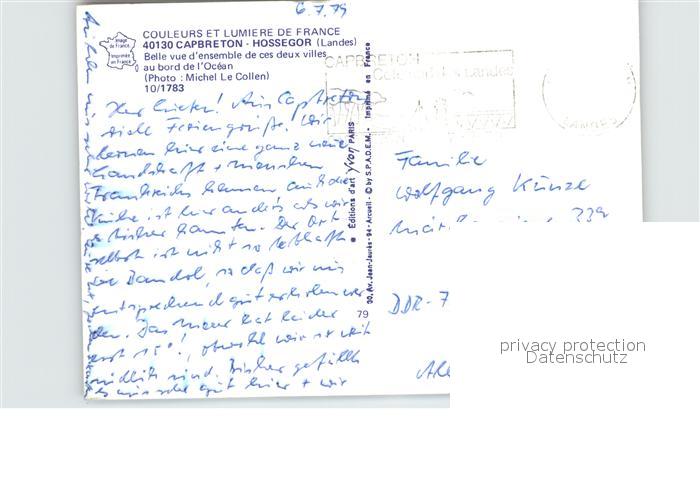 6.7.79
COULEURS ET LUMIERE DE FRANCE
40130 CAPBRETON - HOSSEGOR (Landes)
Belle vue d'ensemble de ces deux villes
au bord de l'Océan
(Photo : Michel Le Collen)
10/1783
Image de France
Imprimée en France
CAPBRETON
Aus Capbreton
viele Feriengrüße! Wir
lernen hier eine ganz neue
Landschaft + Menschen
Frankreichs kennen
ist hier anders als wir
es bisher kannten. Der Ort
selbst ist nicht so lebhaft
wie Bandol, so daß wir uns
entsprechend gut erholen wer
den. Das Meer hat leider
erst 15°!, obwohl wir so weit
südlich sind. Bisher gefällt
es uns sehr gut hier + wir
Editions d'art yvon PARIS
30, Av. Jean-Jaurès - 94 - Arcueil - © by S.P.A.D.E.M. - Imprimé en France
79
Familie
Wolfgang Künze
DDR-7
privacy protection
Datenschutz